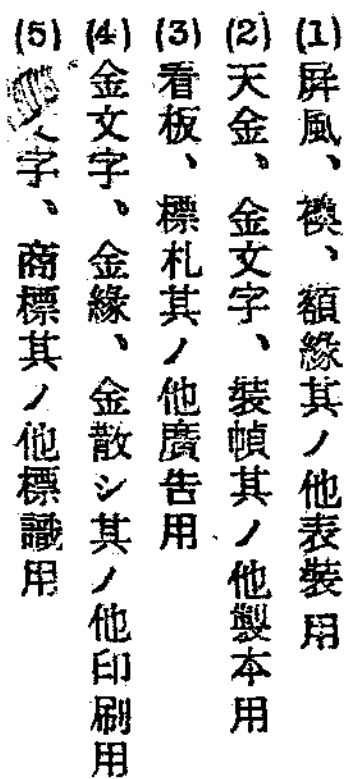 (1) 屛風、襖、額緣其ノ他表裝用
(2) 天金、金文字、裝幀其ノ他製本用
(3) 看板、標札其ノ他廣告用
(4) 金文字、金緣、金散シ其ノ他印刷用
(5) 文字、商標其ノ他標識用